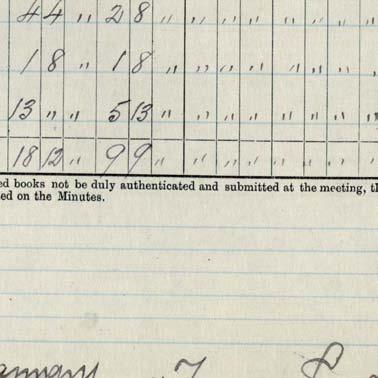 44 " 28 " " " " " " " "
18 " 18 " " " " " " " "
13 " " 513 " " " " " " " "
1812 " 99 " " " " " " " "
ed books not be duly authenticated and submitted at the meeting, th
ed on the Minutes.